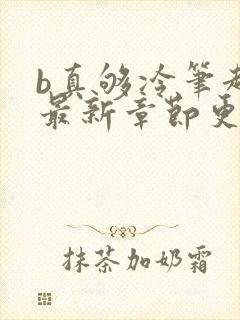 b真够冷笔趣
最新章节更
抹茶加奶霜